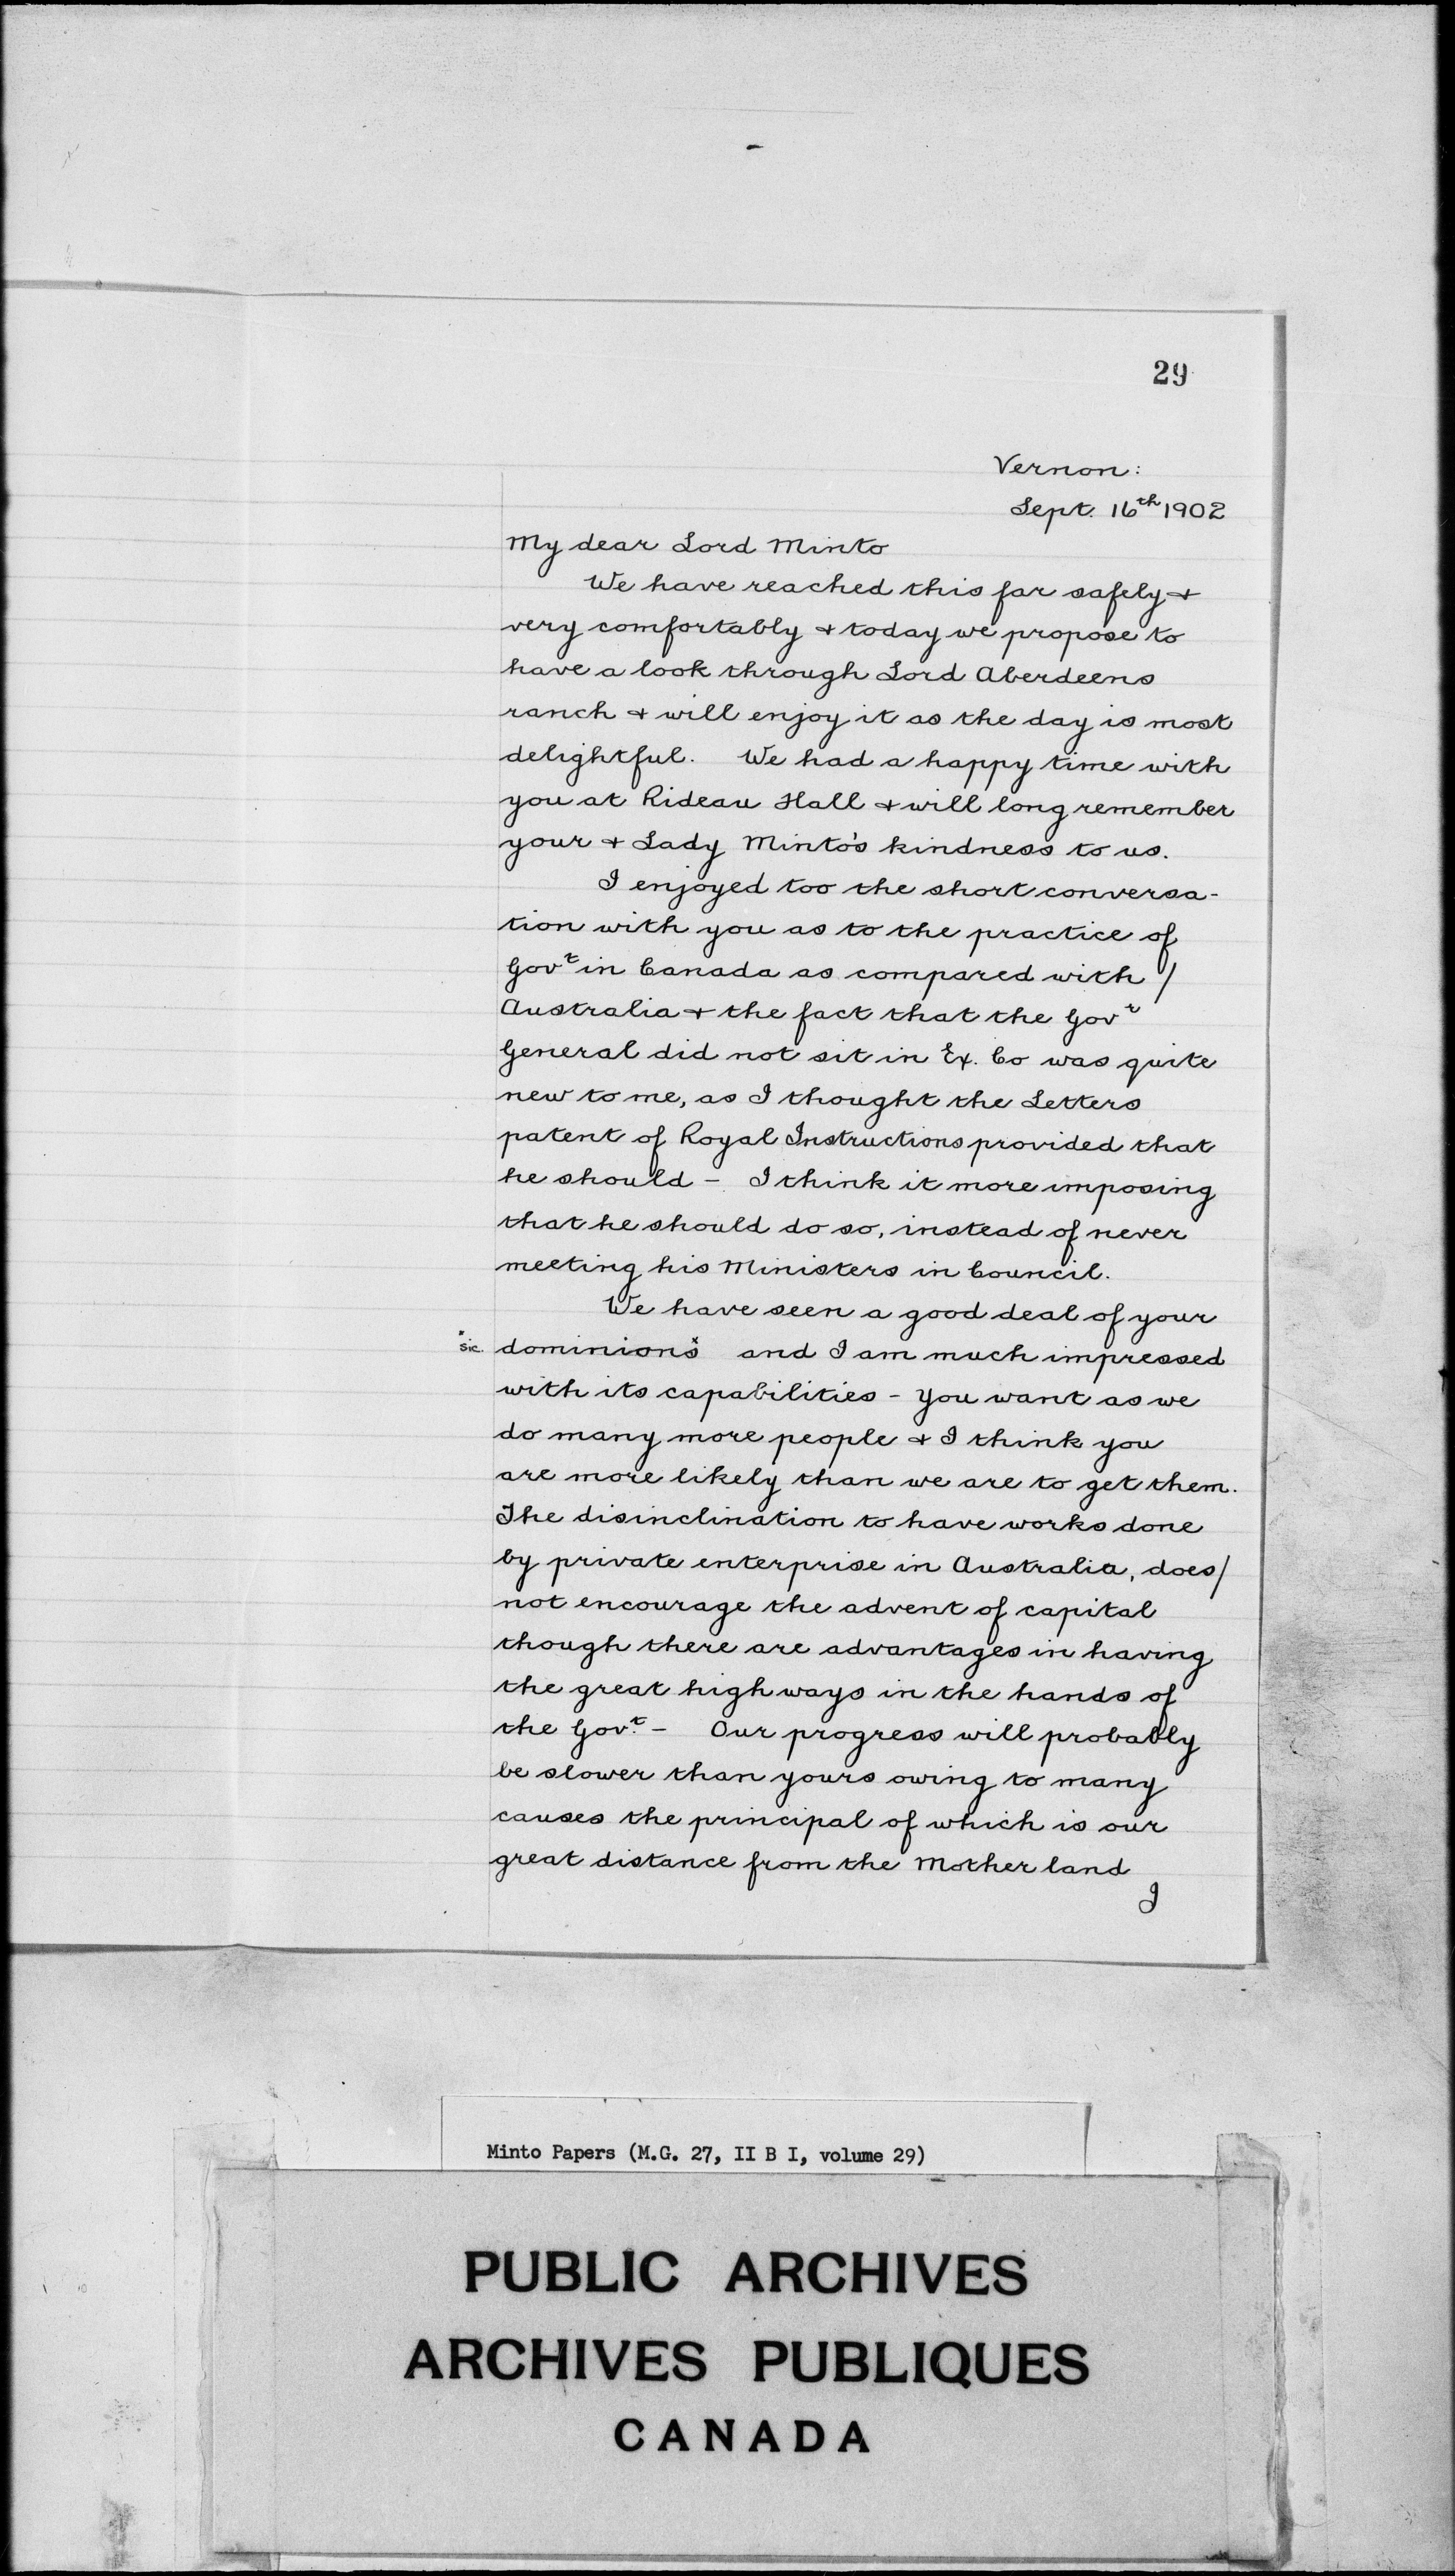 29
Vernon:
Sept. 16th 1902
My dear Lord Minto
We have reached this far safely &
very comfortably & today we propose to
have a look through Lord Aberdeens
ranch & will enjoy it as the day is most
delightful. We had a happy time with
you at Rideau Hall & will long remember
your & Lady Minto's kindness to us.
I enjoyed too the short conversa-
tion with you as to the practice of
Govt in Canada as compared with /
Australia & the fact that the Govr
General did not sit in Ex. Co was quite
new to me, as I thought the Letters
patent of Royal Instructions provided that
he should - I think it more imposing
that he should do so, instead of never
meeting his Ministers in Council.
We have seen a good deal of your
x sic. dominions x and I am much impressed
with its capabilities - you want as we
do many more people & I think you
are more likely than we are to get them.
The disinclination to have works done
by private enterprise in Australia, does/
not encourage the advent of capital
though there are advantages in having
the great highways in the hands of
the Govt. - Our progress will probably
be slower than yours owing to many
causes the principal of which is our
great distance from the Mother land
I
Minto Papers (M.G. 27, II B I, volume 29)
PUBLIC ARCHIVES
ARCHIVES PUBLIQUES
CANADA